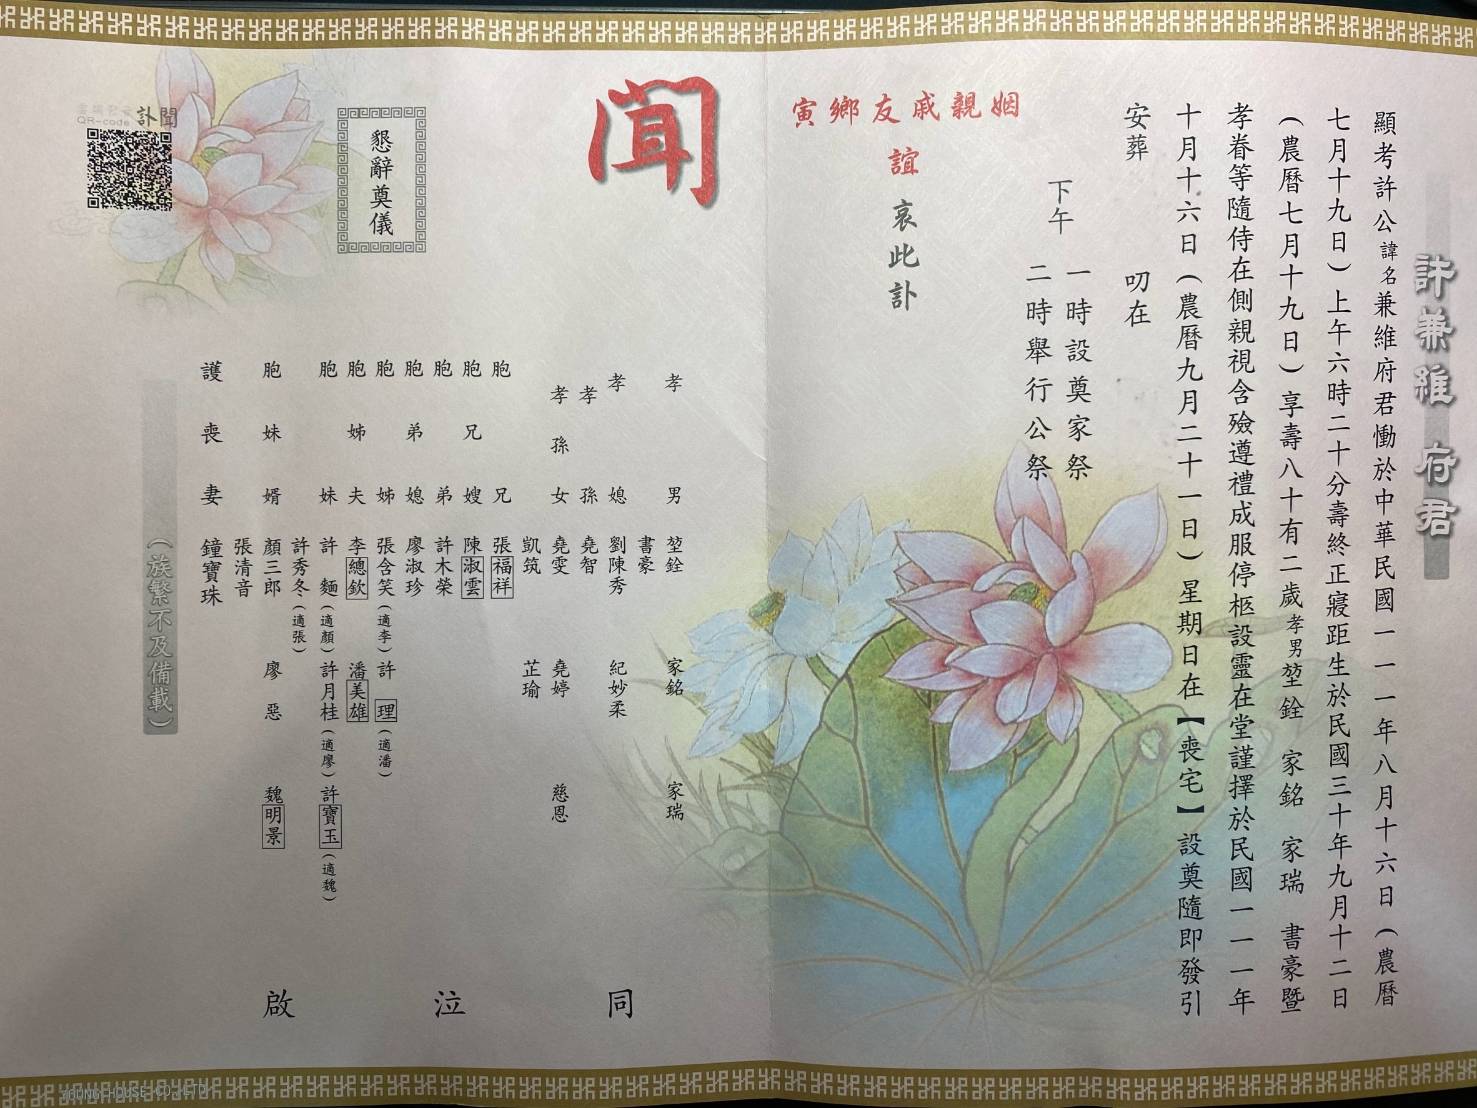 許兼維 府君
顯考許公諱名兼維府君慟於中華民國一一一年八月十六日(農曆
七月十九日)上午六時二十分壽終正寢距生於民國三十年九月十二日
(農曆七月十九日)享壽八十有二歲孝男堃銓 家銘 家瑞 書豪暨
孝眷等隨侍在側親視含殮遵禮成服停柩設靈在堂謹擇於民國一一一年
十月十六日(農曆九月二十一日)星期日在【喪宅】設奠隨即發引
安葬 叨在
下午 一時設奠家祭
二時舉行公祭
姻親戚友鄉寅
誼 哀此訃
聞
孝男 堃銓 家銘 家瑞
書豪
孝媳 劉陳秀 紀妙柔
孝孫 堯智
孝孫女 堯雯 堯婷 慈恩
凱筑 芷瑜
胞兄 張福祥
胞兄嫂 陳淑雲
胞弟 許木榮
胞弟媳 廖淑珍
胞姊 張含笑(適李) 許理(適潘)
胞姊夫 李總欽 潘美雄
胞妹 許麵(適顏) 許月桂(適廖) 許寶玉(適魏)
許秀冬(適張)
胞妹婿 顏三郎 廖惡 魏明景
張清音
護喪妻 鐘寶珠
同泣啟
(族繁不及備載)
懇辭奠儀
訃聞
QR-code
YOUNG HOUSE CO.,LTD